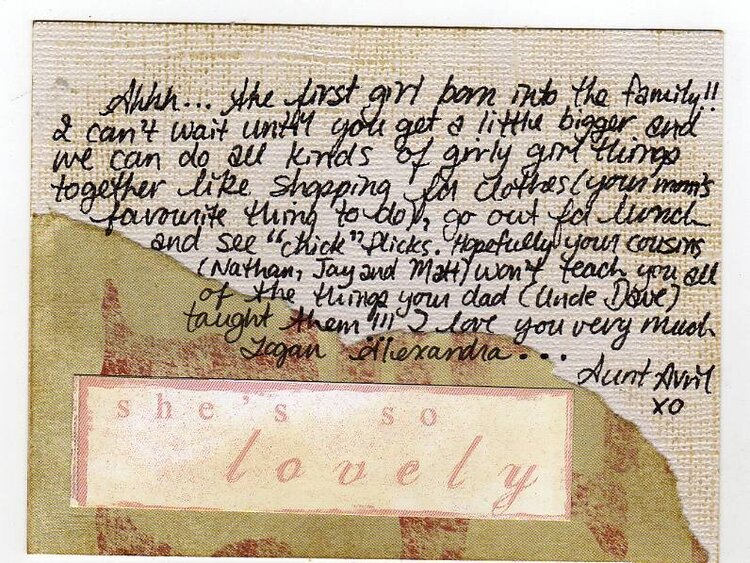 Ahhh... the first girl born into the family!!
I can't wait until you get a little bigger and
we can do all kinds of grrly girl things
together like shopping for clothes (your mom's
favourite thing to do), go out for lunch
and see "chick" flicks. Hopefully your cousins
(Nathan, Jay and Matt) won't teach you all
of the things your dad (Uncle Dave)
taught them!!! I love you very much
Tegan Alexandra...
Aunt Avril
xo
she's so
lovely